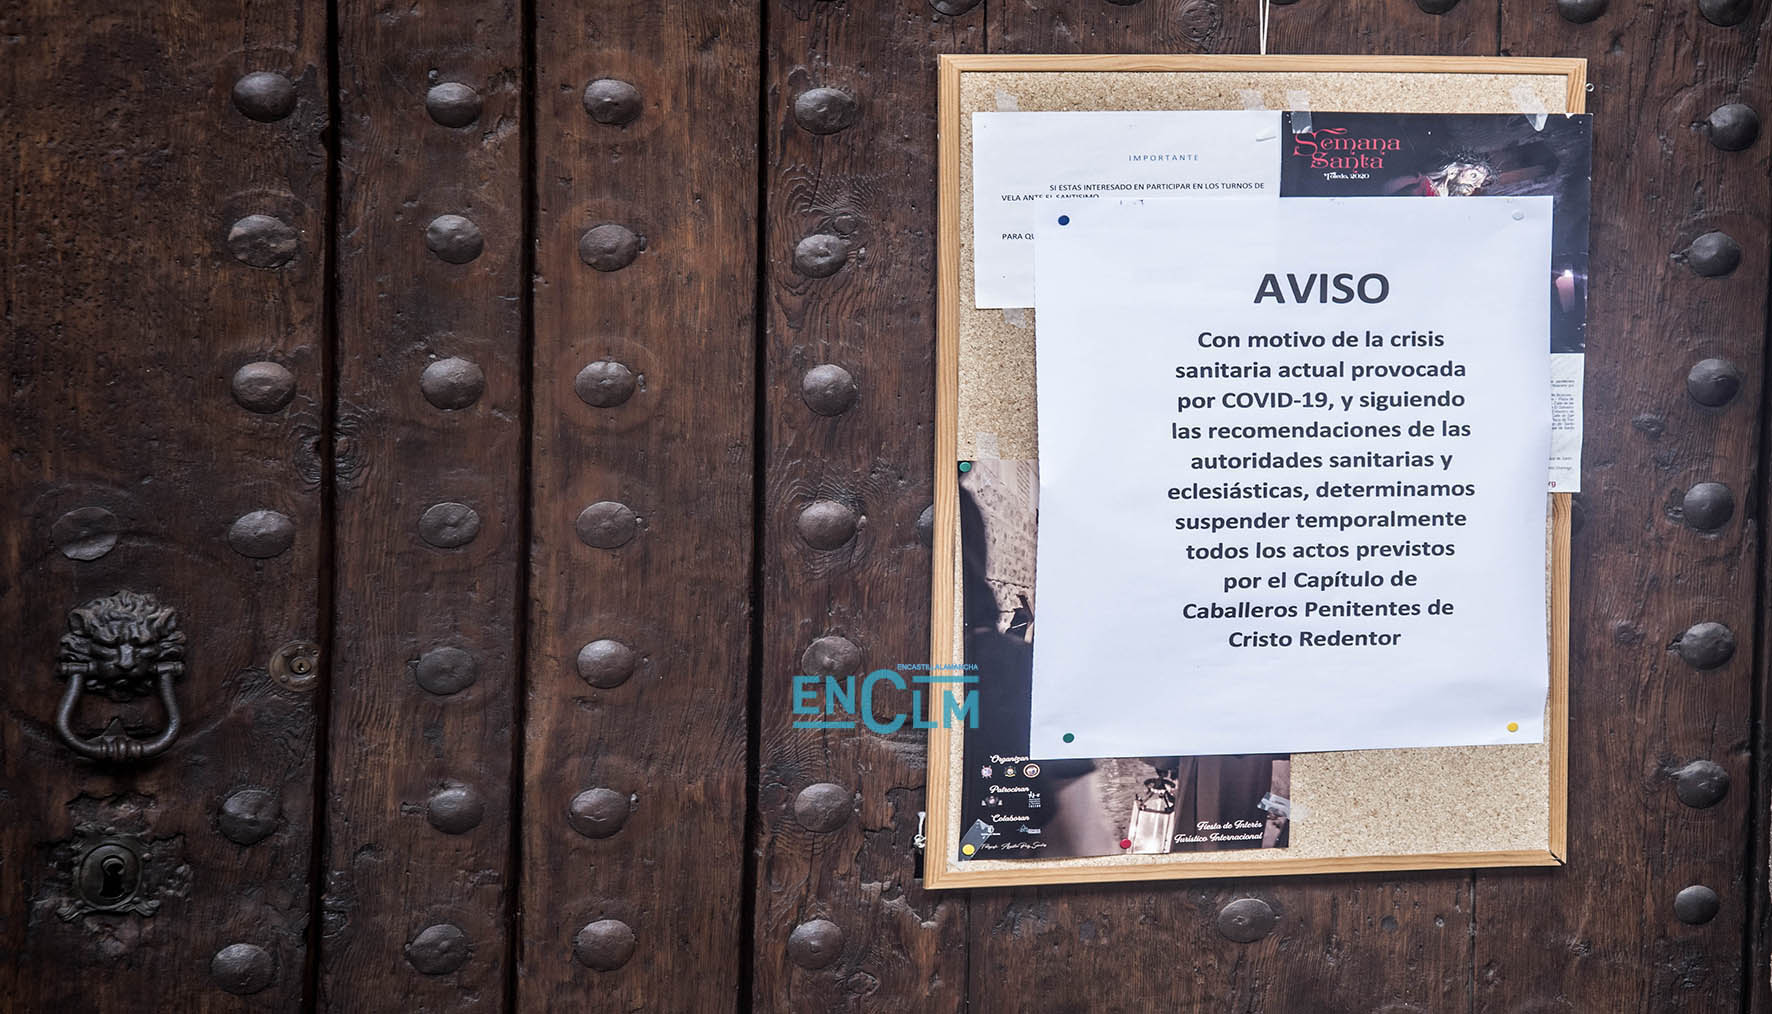 IMPORTANTE
SI ESTAS INTERESADO EN PARTICIPAR EN LOS TURNOS DE
VELA ANTE EL SANTISIMO
PARA
Semana
Santa
Toledo, 2020
AVISO
Con motivo de la crisis
sanitaria actual provocada
por COVID-19, y siguiendo
las recomendaciones de las
autoridades sanitarias y
eclesiásticas, determinamos
suspender temporalmente
todos los actos previstos
por el Capítulo de
Caballeros Penitentes de
Cristo Redentor
ENCASTILLALAMANCHA
ENCLM
Organizan
Patrocinan
Colaboran
Fiesta de Interés
Turístico Internacional